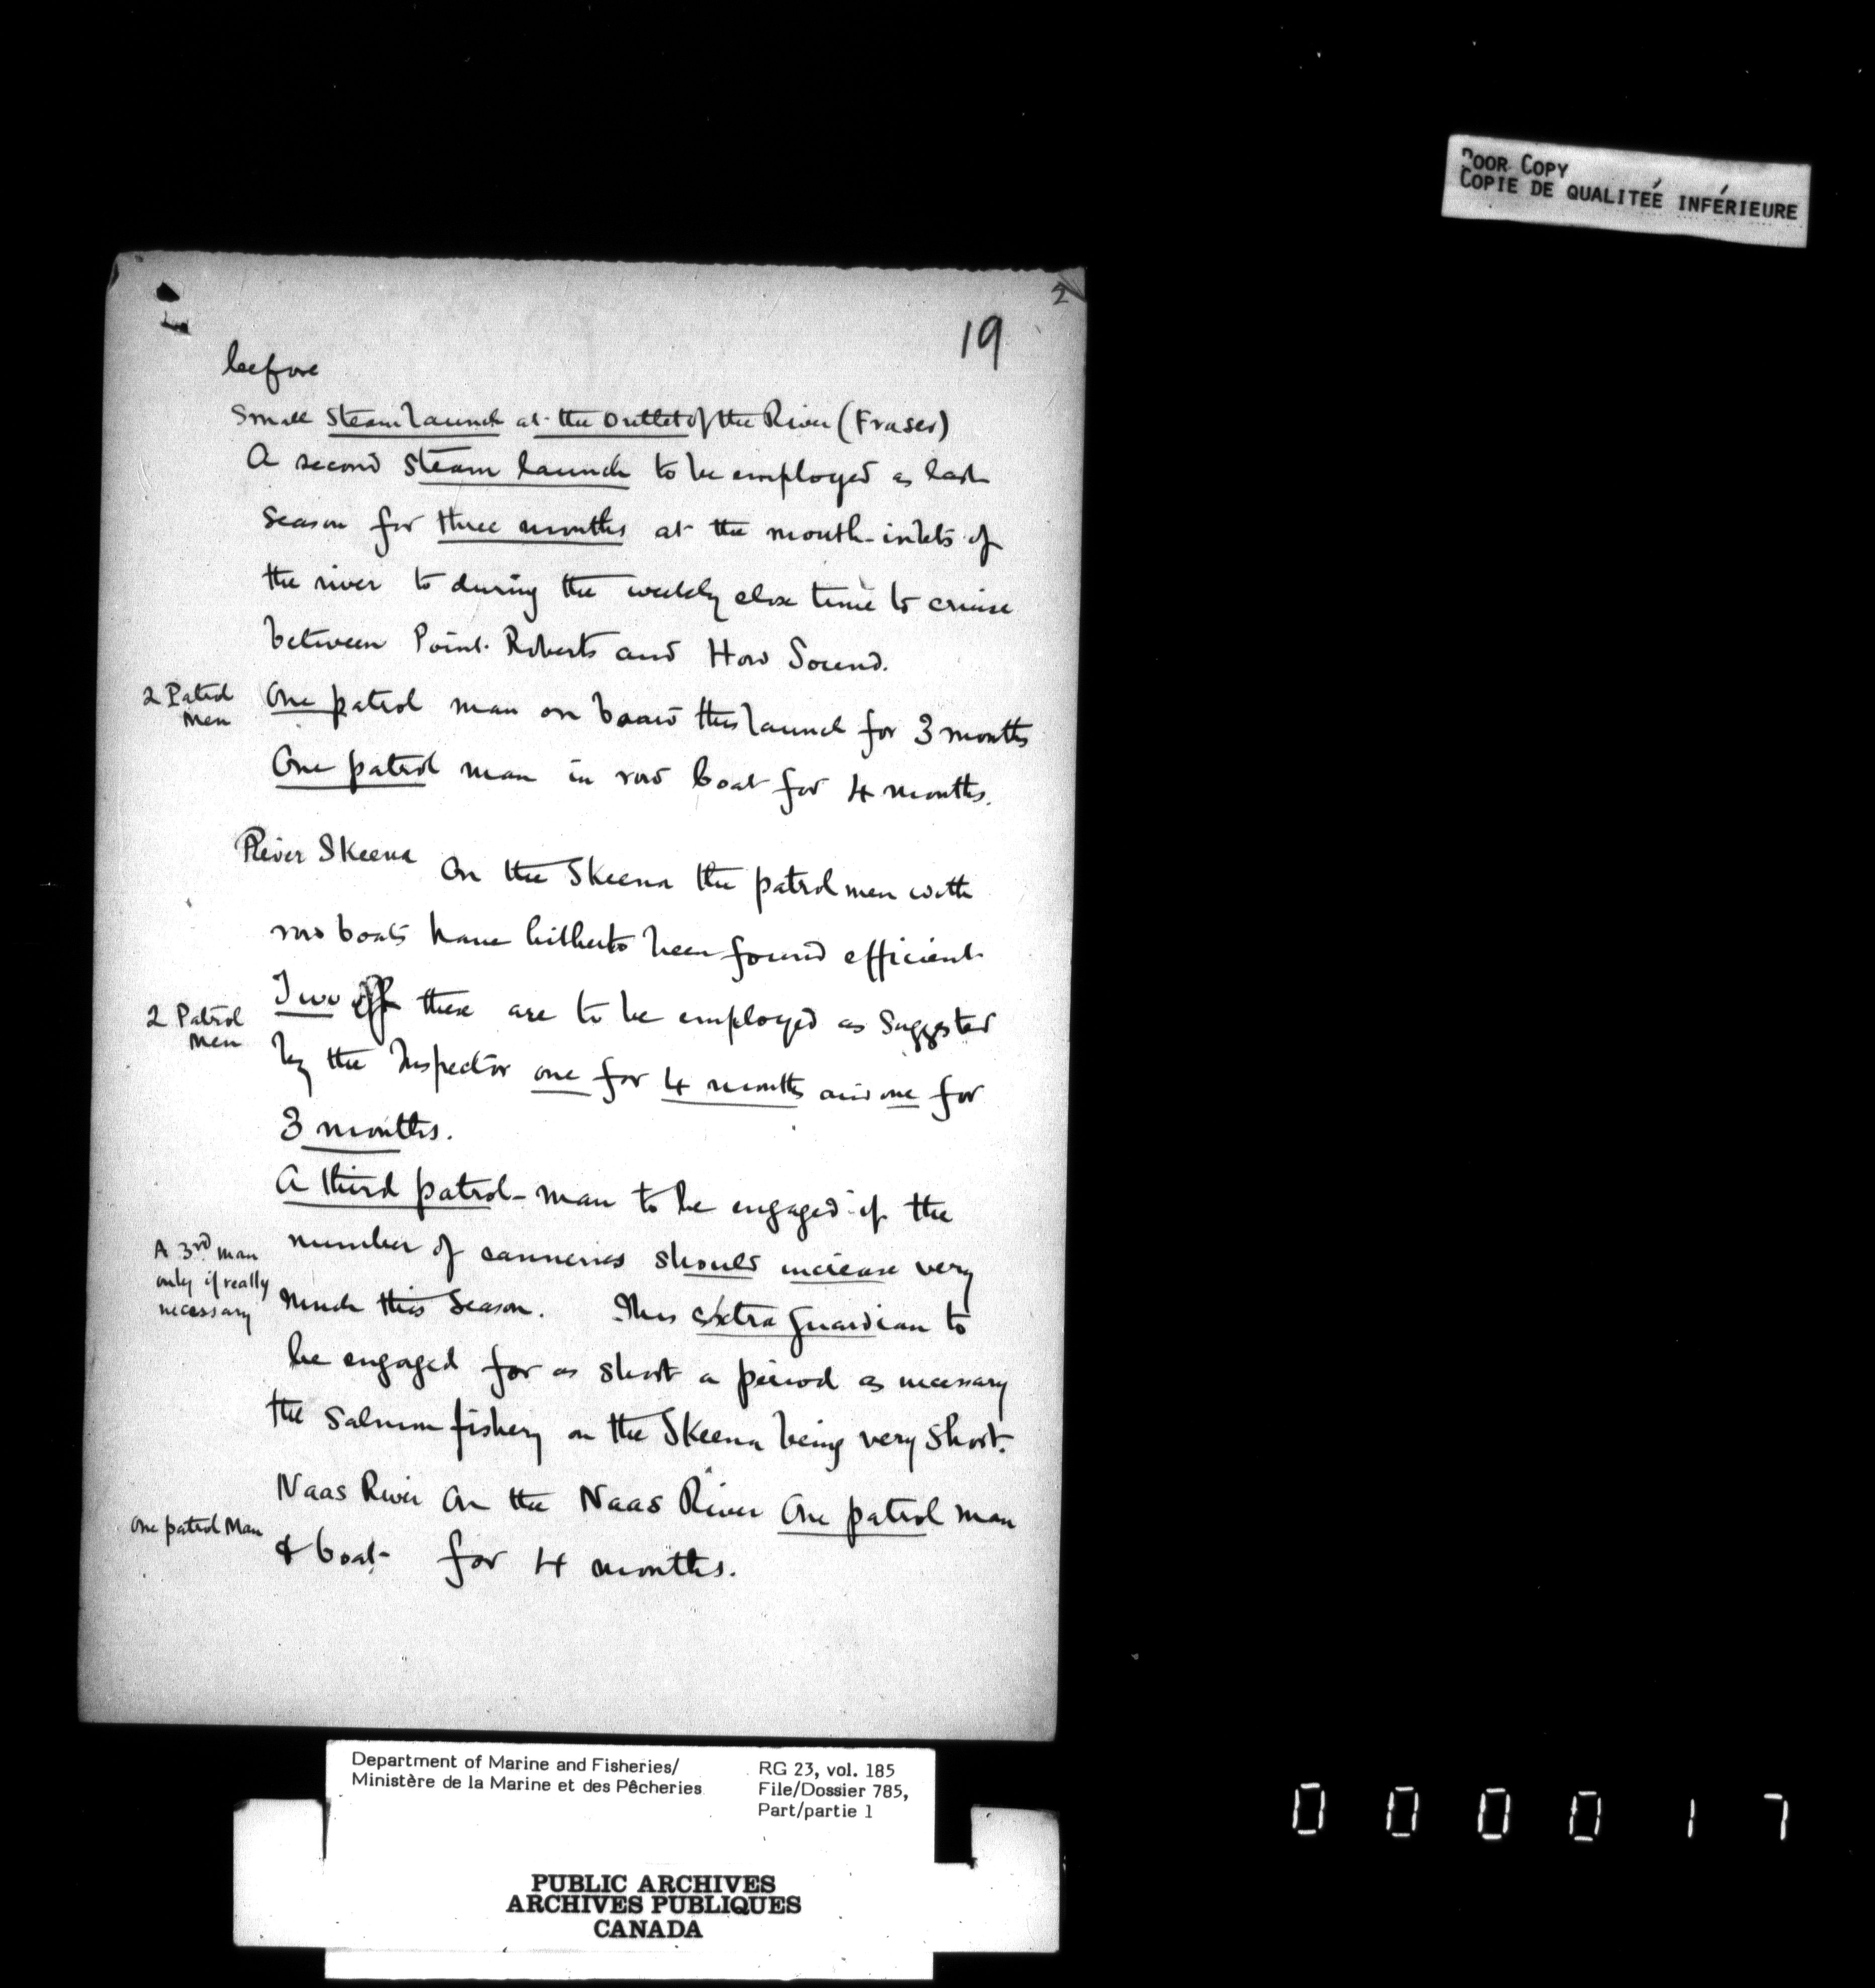 POOR COPY
COPIE DE QUALITEÉ INFÉRIEURE
2
19
before
Small Steam launch at the outlet of the River (Fraser)
A second steam launch to be employed as last
season for three months at the mouth-inlets of
the river to during the weekly close time to cruise
between Point Roberts and How Sound.
2 Patrol
Men
One patrol man on board this launch for 3 months
One patrol man in row boat for 4 months.
River Skeena On the Skeena the patrol men with
row boats have hitherto been found efficient
2 Patrol
Men
Two of these are to be employed as suggested
by the Inspector one for 4 months and one for
3 months.
A third patrol-man to be engaged if the
A 3rd man
only if really
necessary
number of canneries should increase very
much this season. This extra guardian to
be engaged for as short a period as necessary
the salmon fishery on the Skeena being very short.
One patrol Man
Naas River On the Naas River One patrol man
& boat for 4 months.
Department of Marine and Fisheries/
Ministère de la Marine et des Pêcheries
RG 23, vol. 185
File/Dossier 785,
Part/partie 1
PUBLIC ARCHIVES
ARCHIVES PUBLIQUES
CANADA
000017